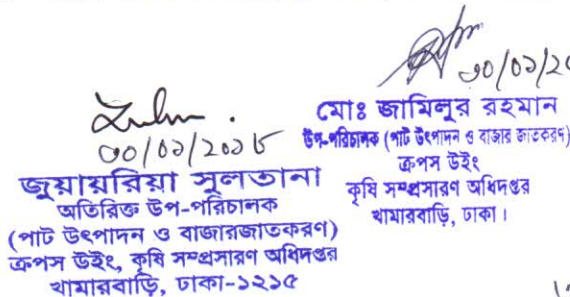 ৩০/০১/২০১৮
জুয়ায়রিয়া সুলতানা
অতিরিক্ত উপ-পরিচালক
(পাট উৎপাদন ও বাজারজাতকরণ)
ক্রপস উইং, কৃষি সম্প্রসারণ অধিদপ্তর
খামারবাড়ি, ঢাকা-১২১৫
৩০/০১/২০
মোঃ জামিলুর রহমান
উপ-পরিচালক (পাট উৎপাদন ও বাজার জাতকরণ)
ক্রপস উইং
কৃষি সম্প্রসারণ অধিদপ্তর
খামারবাড়ি, ঢাকা।